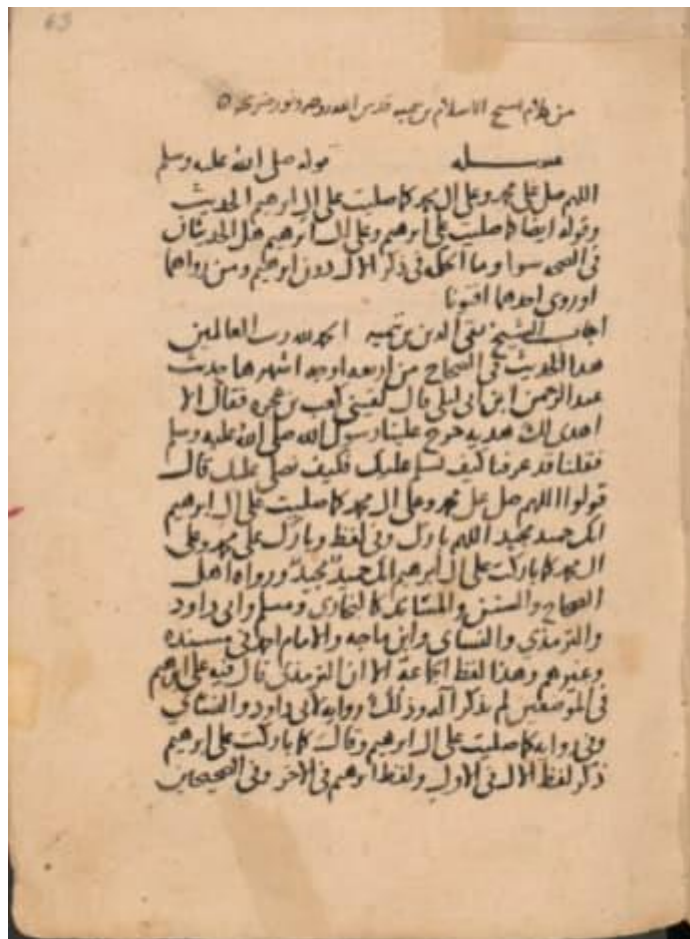 63
من كلام شيخ الاسلام بن تيميه قدس الله روحه ونور ضريحه
مسله قوله صلى الله عليه وسلم
اللهم صل على محمد وعلى ال محمد كما صليت على ال ابرهيم الحديث
وقوله ايضا كما صليت على ابرهيم وعلى ال ابرهيم هل الحديثان
فى الصحه سوا وما الحكمه فى ذكر الال دون ابرهيم ومن رواهما
او روى احدهما افتونا
اجاب الشيخ تقى الدين بن تيميه الحمد لله رب العالمين
هذا الحديث فى الصحاح من اربعه اوجه اشهرها حديث
عبد الرحمن ابن ابى ليلى قال لقينى كعب بن عجره فقال الا
اهدى لك هديه خرج علينا رسول الله صلى الله عليه وسلم
فقلنا قد عرفنا كيف نسلم عليك فكيف نصلى عليك قال
قولوا اللهم صل على محمد وعلى ال محمد كما صليت على ال ابرهيم
انك حميد مجيد اللهم بارك وفى لفظ وبارك على محمد وعلى
ال محمد كما باركت على ال ابرهيم انك حميد مجيد ورواه اهل
الصحاح والسنن والمسانيد كالبخارى ومسلم وابى داود
والترمذى والنساى وابن ماجه والامام احمد فى مسنده
وغيرهم وهذا لفظ الجماعة الا ان الترمذى قال فيه على ابرهيم
فى الموضعين لم يذكر اله وذلك رواية لابى داود والنساى
وفى روايه كما صليت على ال ابرهيم وقال كما باركت على ابرهيم
ذكر لفظ الال فى الاول ولفظ ابرهيم فى الاخر وفى الصحيحين